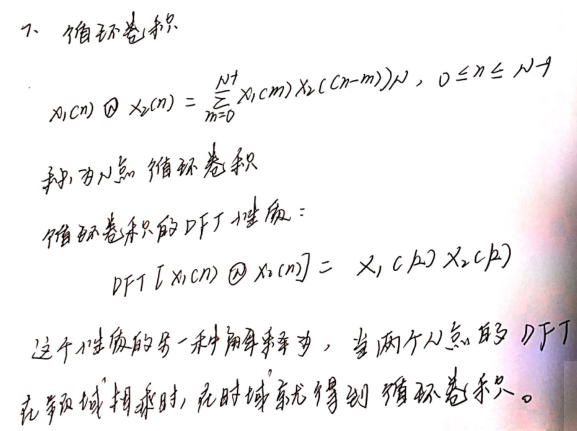 7、循环卷积
x₁(n) Ⓝ x₂(n) = ∑_{m=0}^{N-1} x₁(m) x₂((n-m))_N , 0≤n≤N-1
称为N点循环卷积
循环卷积的DFT性质：
DFT[x₁(n) Ⓝ x₂(n)] = X₁(k) X₂(k)
这个性质的另一种解释为，当两个N点的DFT
在"频域"相乘时，在"时域"就得到循环卷积。